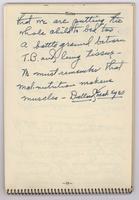 Notes
that we are putting the
whole child to bed too.
A battle ground between
T.B. and lung tissue.
We must remember that
malnutrition makes
muscles - Balland, and eyes